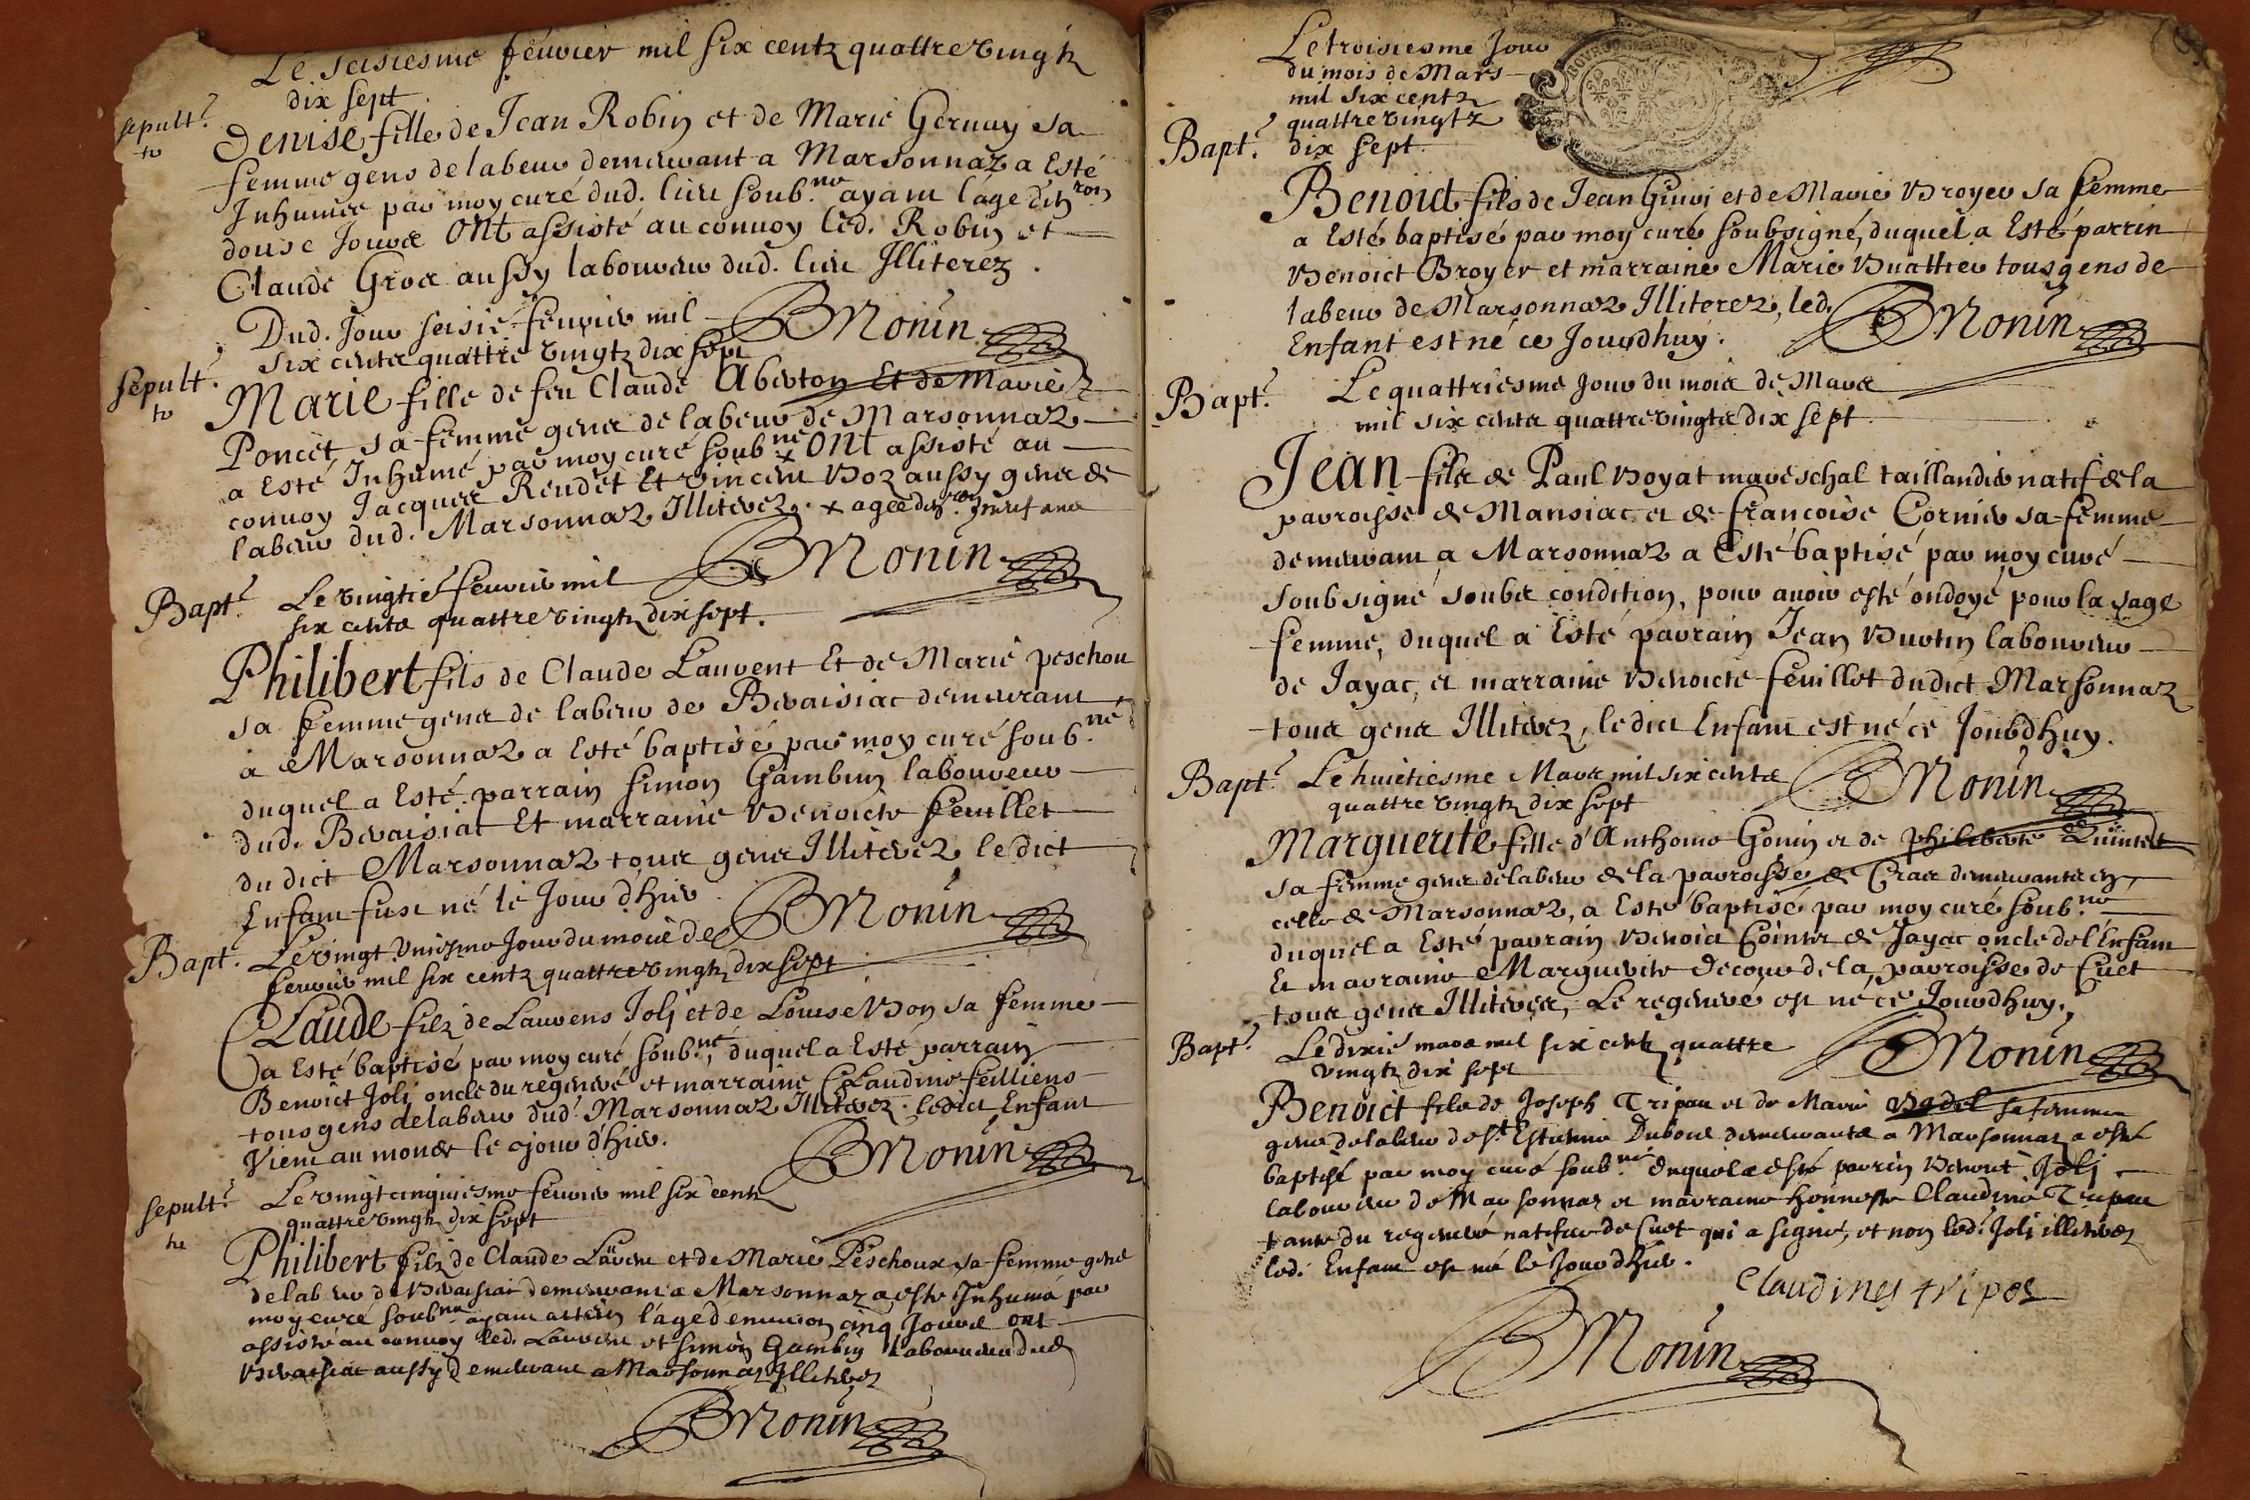 Le seisiesme feuvier mil six centz quattre vingtz
dix sept.
sepult.re
Denise fille de Jean Robin et de Marie Geruay sa
femme gens de labeur demeurant a Marsonnaz a Esté
Inhumée par moy curé dud. lieu soub.né ayant l'age d'en.ron
douse Jours Ont assisté au convoy led. Robin et
Claude Gros aussy laboureur dud. lieu Illiterez.
BMonin
Dud. Jour seisie. feuvier mil
six cents quattre vingtz dix sept
sepult.re
Marie fille de feu Claude Aberton Et de Marie
Poncet sa femme gens de labeur de Marsonnaz
a Esté Inhumé par moy curé soub.né x Ont assisté au
convoy Jacques Rendet Et vincent Boz aussy gens de
labeur dud. Marsonnaz Illiterez. x agée d'en.ron
BMonin
Bapt.e
Le vingtie. feuvier mil
six cents quattre vingtz dix sept.
Philibert fils de Claude Laurent Et de Marie peschou
sa femme gens de labeur de Beraisiac demeurant
à Marsonnaz a Esté baptisé par moy curé soub.né
duquel a Esté parrain Simon Gambin laboureur
dud. Beraisiat Et marraine Benoicte feuillet
du dict Marsonnaz tous gens Illiterez le dict
Enfant fust né le Jour d'hier.
BMonin
Bapt.
Le vingt Uniesme Jour du mois de
feuvier mil six centz quattre vingtz dix sept
Claude filz de Laurens Joli et de Louise Bon sa femme
a Esté baptisé par moy curé soub.né, duquel a Esté parrain
Benoict Joli oncle du regeneré et marraine Claudine feilliens
tous gens de labeur dud. Marsonnaz Illiterez. ledict Enfant
Vient au monde le Jour d'hier.
BMonin
sepult.re
Le vingt cinquiesme feuvier mil six centz
quattre vingtz dix sept
Philibert filz de Claude Laurent et de Marie Peschoux sa femme gens
de labeur de Beraisiat demeurant a Marsonnaz a esté Inhumé par
moy curé soub.né ayant atteint l'age d'environ cinq Jours ont
assisté au convoy led. Laurent et Simon Gambin laboureur dud.
Beraisiat aussy demeurant a Marsonnaz Illiterez
BMonin
Le troisiesme Jour
du mois de Mars
mil six centz
quattre vingtz
dix sept.
Bapt.e
Benoict fils de Jean Giuoj et de Marie Broyer sa femme
a Esté baptisé par moy curé soubsigné, duquel a Esté parrin
Benoict Broyer et marraine Marie Buattier tous gens de
labeur de Marsonnaz Illiterez, led.
Enfant est né ce Jourdhuy.
BMonin
Bapt.e
Le quattriesme Jour du mois de Mars
mil six cents quattre vingts dix sept.
Jean fils de Paul Boyat mareschal taillandier natif de la
parroisse de Mansiac et de francoise Cornier sa femme
demeurant a Marsonnaz a Esté baptisé par moy curé
soubsigné soubs condition, pour auoir esté ondoyé pour la sage
femme, duquel a Esté parrain Jean Burtin laboureur
de Jayac, et marraine Benoicte feuillet dudict Marsonnaz
tous gens Illiterez, ledict Enfant est né ce Jourdhuy.
BMonin
Bapt.e
Le huictiesme Mars mil six cents
quattre vingtz dix sept
Marguerite fille d'Anthoine Gonin et de philiberte Quintet
sa femme gens de labeur de la parroisse de Cras demeurants en
celle de Marsonnaz, a Esté baptisé par moy curé soub.né
duquel a Esté parrain Benoict Cointet de Jayac oncle de l'Enfant
Et marraine Marguerite Decour de la parroisse de Cuet
tous gens Illiterez, Le regeneré est né ce Jourdhuy.
BMonin
Bapt.e
Le dixie. mars mil six centz quattre
vingtz dix sept
Benoict fils de Joseph Tripou et de Marie Badel sa femme
gens de labeur de st. Estienne Dubois demeurants a Marsonnaz a esté
baptisé par moy curé soub.né duquel a esté parrin Benoict Joli
laboureur de Marsonnaz et marraine honneste Claudine Tripou
tante du regeneré natifue de Cuet qui a signé, et non led. Joli illiterez
led. Enfant est né le Jour d'hier.
Claudines tripoz
BMonin